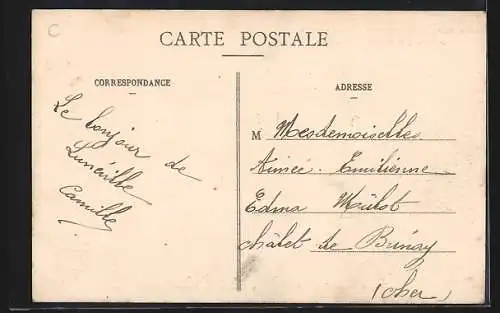 C
CARTE POSTALE
CORRESPONDANCE
ADRESSE
Le bonjour de
Lunéville
Camille
M Mesdemoiselles
Aimée. Emilienne
Edma Mulot
châlet de Brinay
(cher)